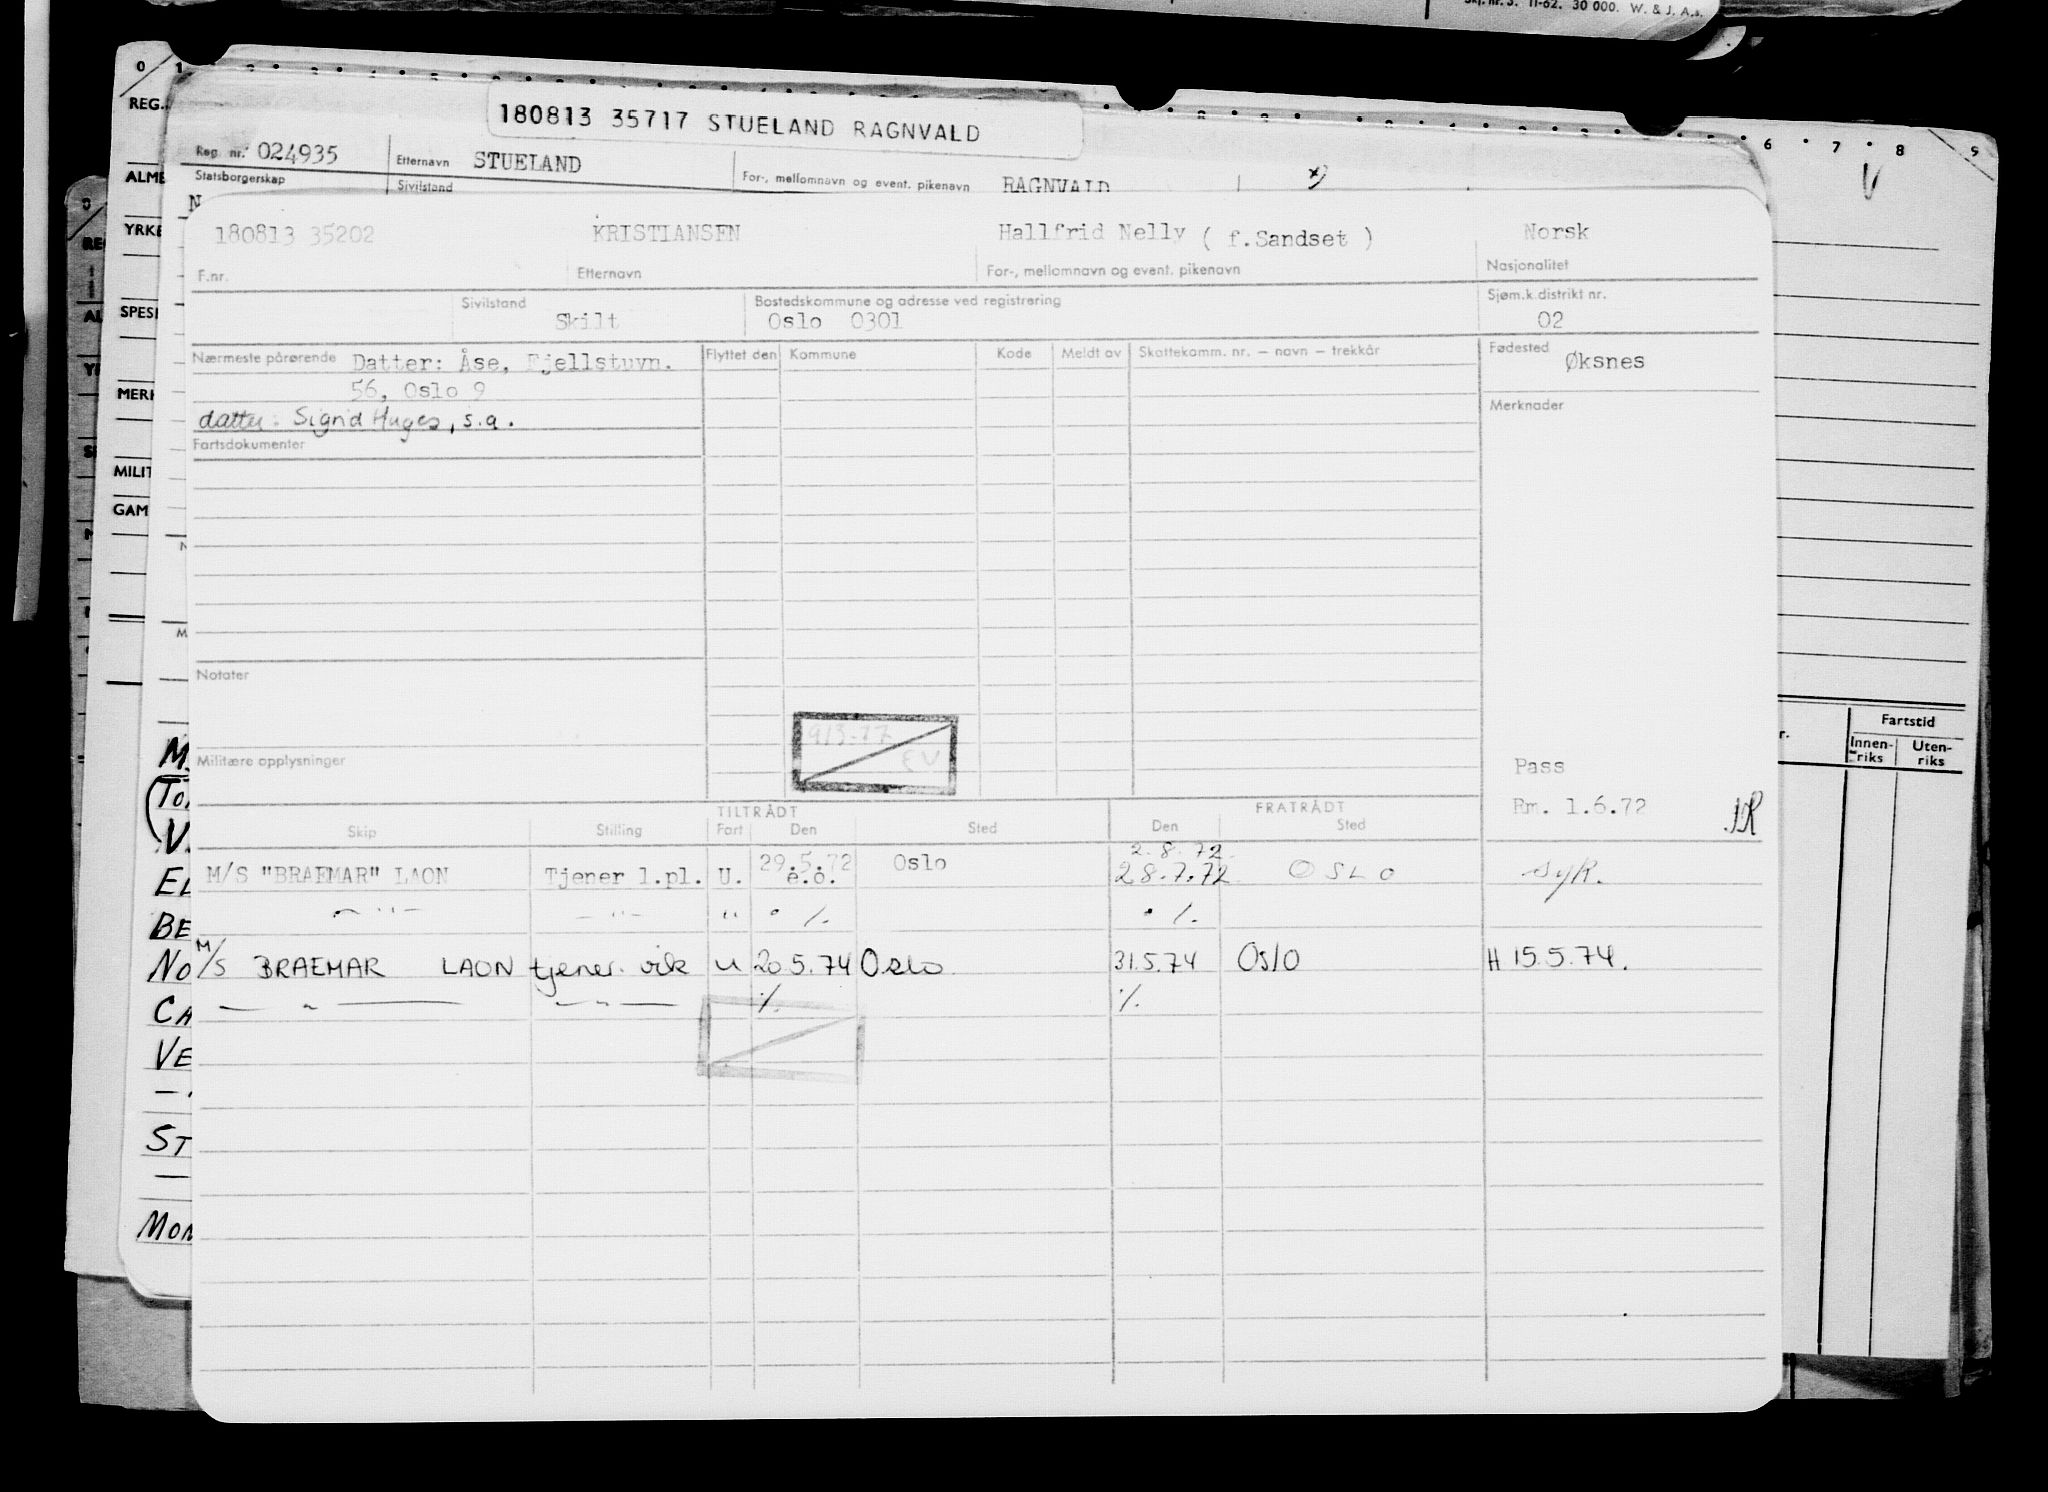 Skj. nr. 3. 11-62. 30 000. W. & J. A.s.
0 1 6 7 8 9
REG.
180813 35717 STUELAND RAGNVALD
Reg. nr. 024935 Etternavn STUELAND For-, mellomnavn og event. pikenavn RAGNVALD x)
Statsborgerskap Sivilstand
V
ALME
YRKE
SPESI
MERK
MILIT
GAM
180813 35202 KRISTIANSEN Hallfrid Nelly ( f.Sandset ) Norsk
F.nr. Etternavn For-, mellomnavn og event. pikenavn Nasjonalitet
Sivilstand Bostedskommune og adresse ved registrering Sjøm.k.distrikt nr.
Skilt Oslo 0301 02
Nærmeste pårørende Datter: Åse, Fjellstuvn. Flyttet den Kommune Kode Meldt av Skattekomm. nr. – navn – trekkår Fødested Øksnes
56, Oslo 9
datter: Sigrid Huges, s.a. Merknader
Fartsdokumenter
Notater
Militære opplysninger
Pass
Em. 1.6.72
TILTRÅDT FRATRÅDT
Skip Stilling Fart Den Sted Den Sted
M/S "BRAEMAR" LAON Tjener l.pl. U. 29.5.72 e.o. Oslo 2.8.72 28.7.72 OSLO syk.
— " — — " — " ./. ./.
M/S BRAEMAR LAON tjener vik u 20 5.74 Oslo 31.5.74 Oslo H 15.5.74.
— " — — " — ./. ./.
Fartstid
Innen-riks Uten-riks
M
To
V.
EL
BE
NO
CA
VE
ST
MON